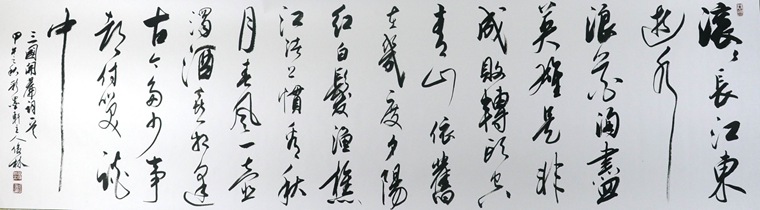 滚〻長江東
逝水
浪花淘盡
英雄是非
成敗轉頭空
青山依舊
在幾度夕陽
紅白髮漁樵
江渚上慣看秋
月春風一壺
濁酒喜相逢
古今多少事
都付笑談
中
三國開篇詞一首
甲午之秋 主人